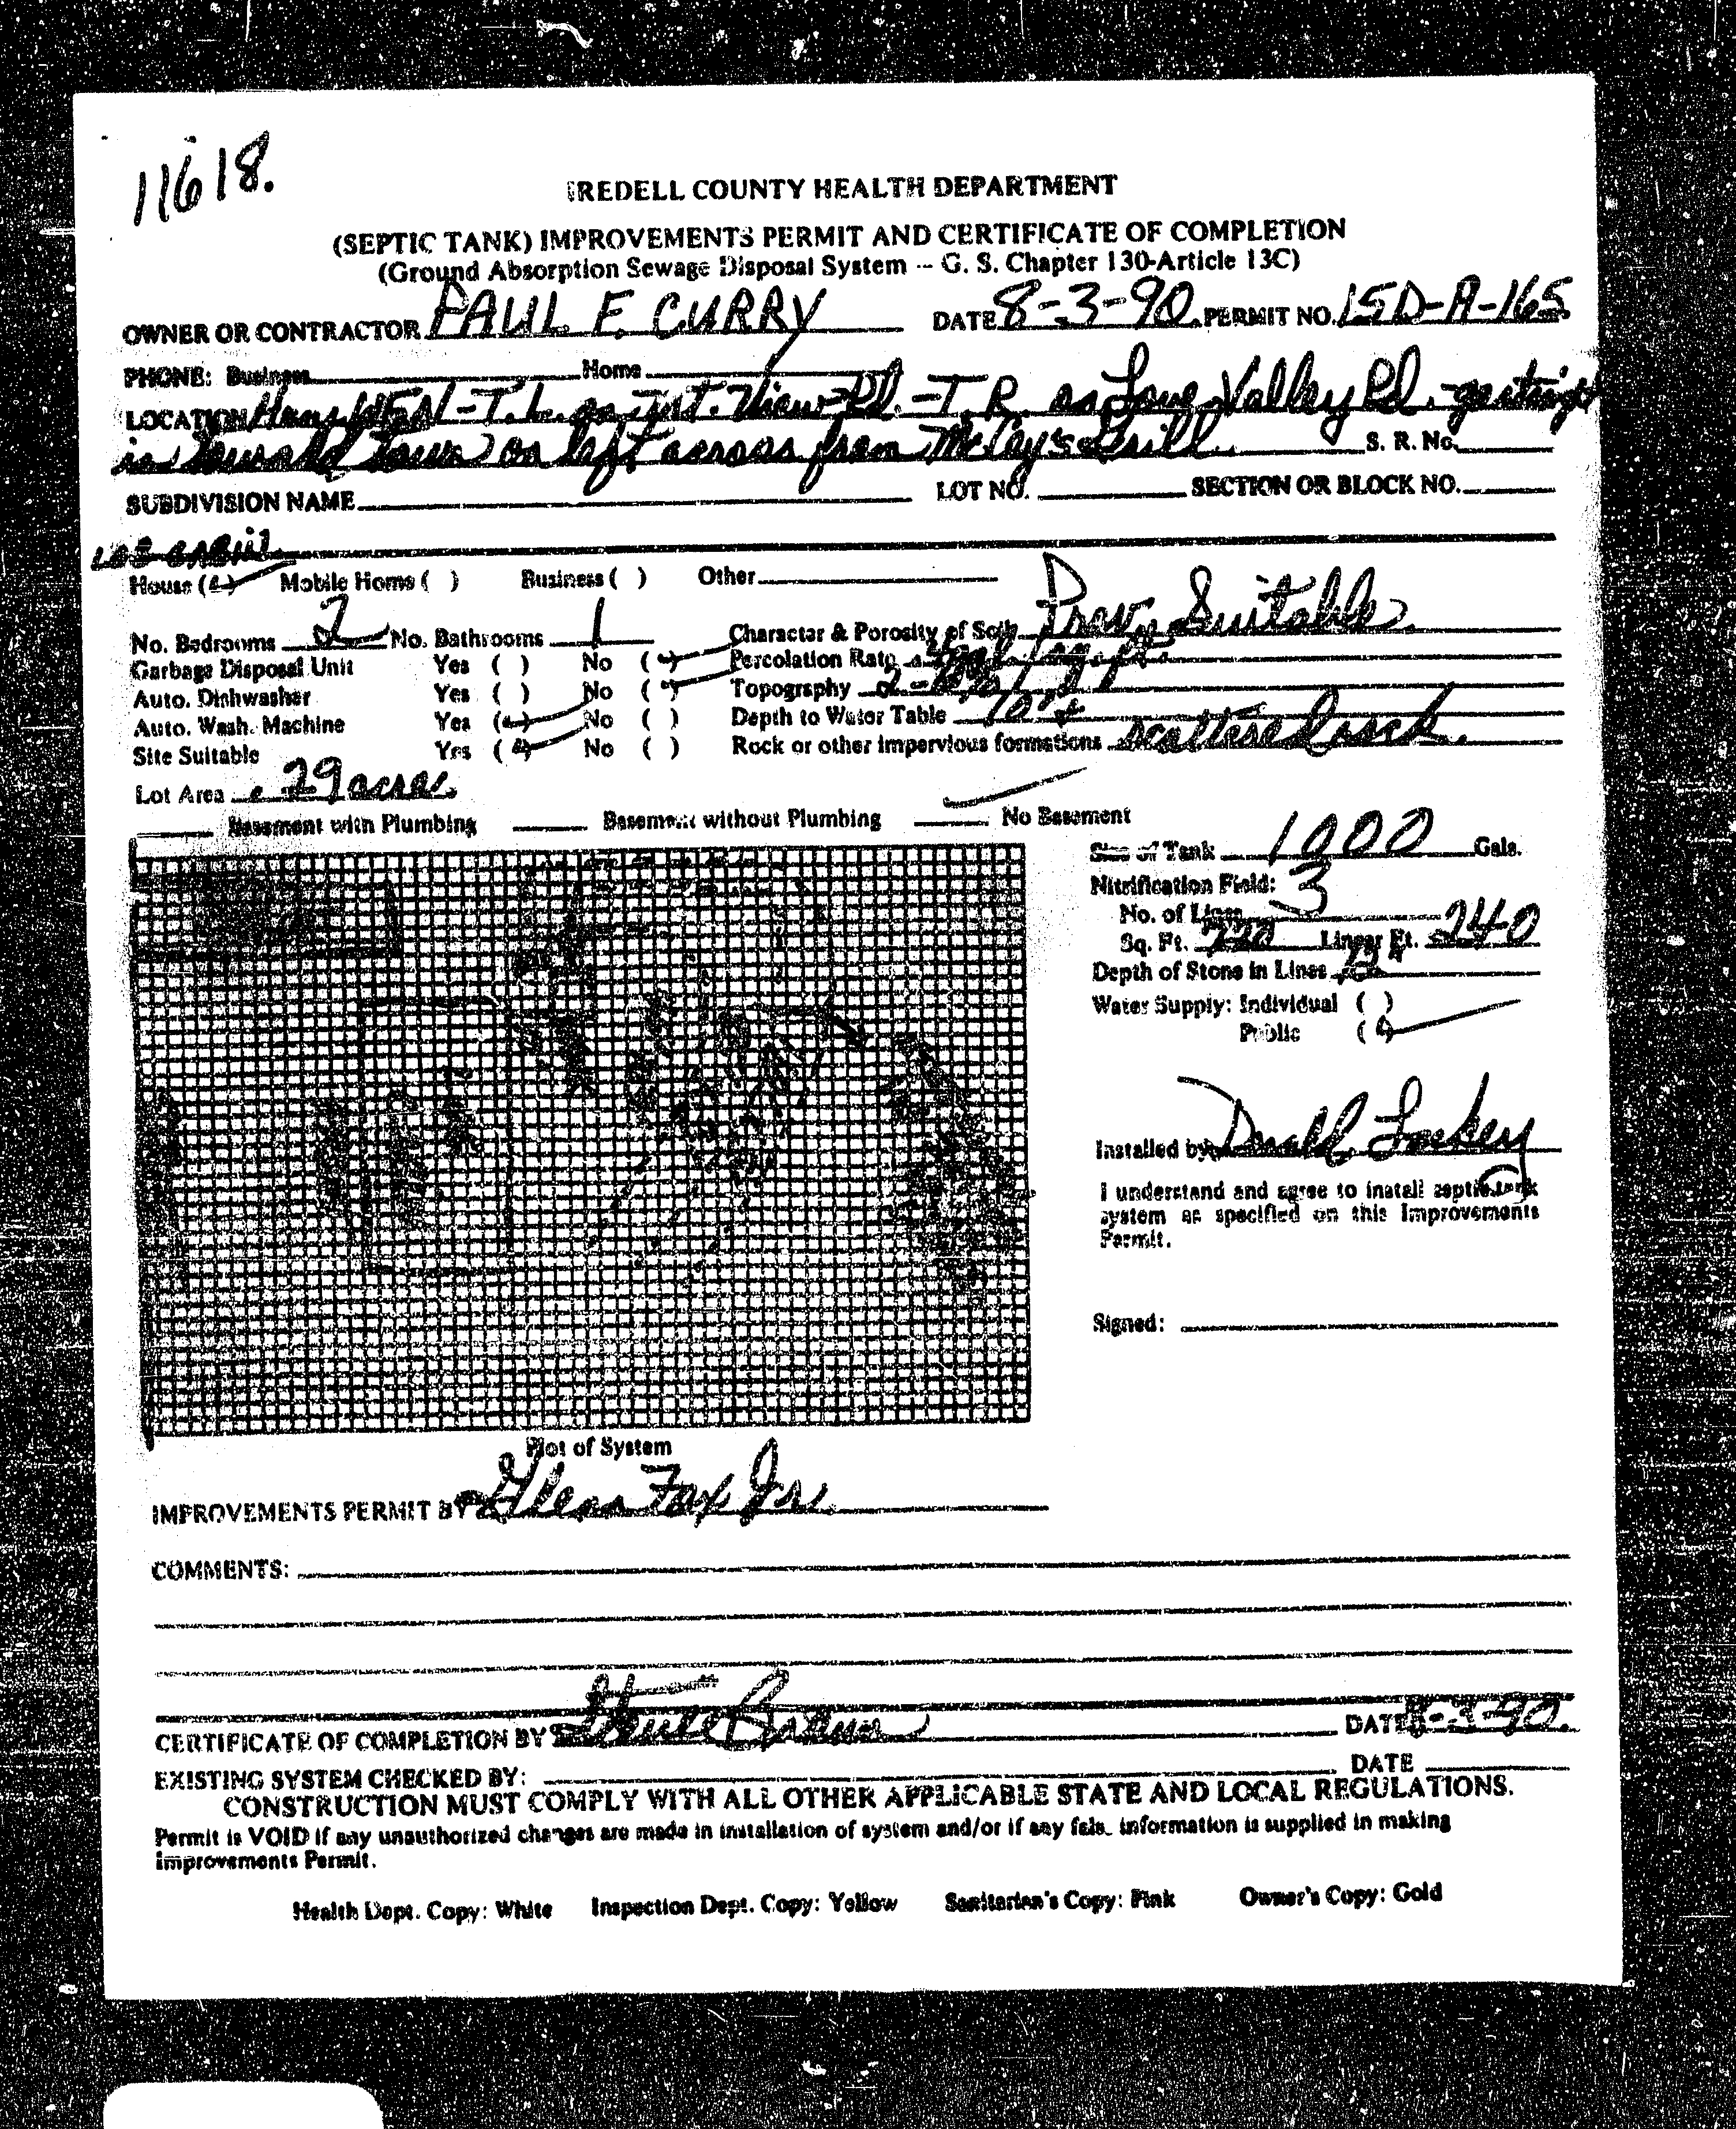 11618.
IREDELL COUNTY HEALTH DEPARTMENT
(SEPTIC TANK) IMPROVEMENTS PERMIT AND CERTIFICATE OF COMPLETION
(Ground Absorption Sewage Disposal System -- G. S. Chapter 130-Article 13C)
OWNER OR CONTRACTOR PAUL F. CURRY DATE 8-3-90 PERMIT NO. 15D-A-165
PHONE: Business Home
LOCATION Hwy - T.L. on Mt. View Rd. - T.R. on Love Valley Rd. go straight
in toward town on left across from McCoy's Grill S. R. No.
SUBDIVISION NAME LOT NO. SECTION OR BLOCK NO.
LOG CABIN
House ( ) Mobile Home ( ) Business ( ) Other
No. Bedrooms 2 No. Bathrooms 1 Character & Porosity of Soils Prov. Suitable
Garbage Disposal Unit Yes ( ) No ( ) Percolation Rate
Auto. Dishwasher Yes ( ) No ( ) Topography
Auto. Wash. Machine Yes ( ) No ( ) Depth to Water Table
Site Suitable Yes ( ) No ( ) Rock or other impervious formations scattered rock.
Lot Area .29 acres
Basement with Plumbing Basement without Plumbing No Basement
Size of Tank 1000 Gals.
Nitrification Field:
No. of Lines 3
Sq. Ft. 720 Linear Ft. 240
Depth of Stone in Lines
Water Supply: Individual ( )
Public ( )
Installed by Lackey
I understand and agree to install septic tank
system as specified on this Improvements
Permit.
Signed:
Plot of System
IMPROVEMENTS PERMIT BY Glenn Fox Jr.
COMMENTS:
CERTIFICATE OF COMPLETION BY Brown DATE 8-3-90
EXISTING SYSTEM CHECKED BY: DATE
CONSTRUCTION MUST COMPLY WITH ALL OTHER APPLICABLE STATE AND LOCAL REGULATIONS.
Permit is VOID if any unauthorized changes are made in installation of system and/or if any false information is supplied in making
Improvements Permit.
Health Dept. Copy: White Inspection Dept. Copy: Yellow Sanitarian's Copy: Pink Owner's Copy: Gold